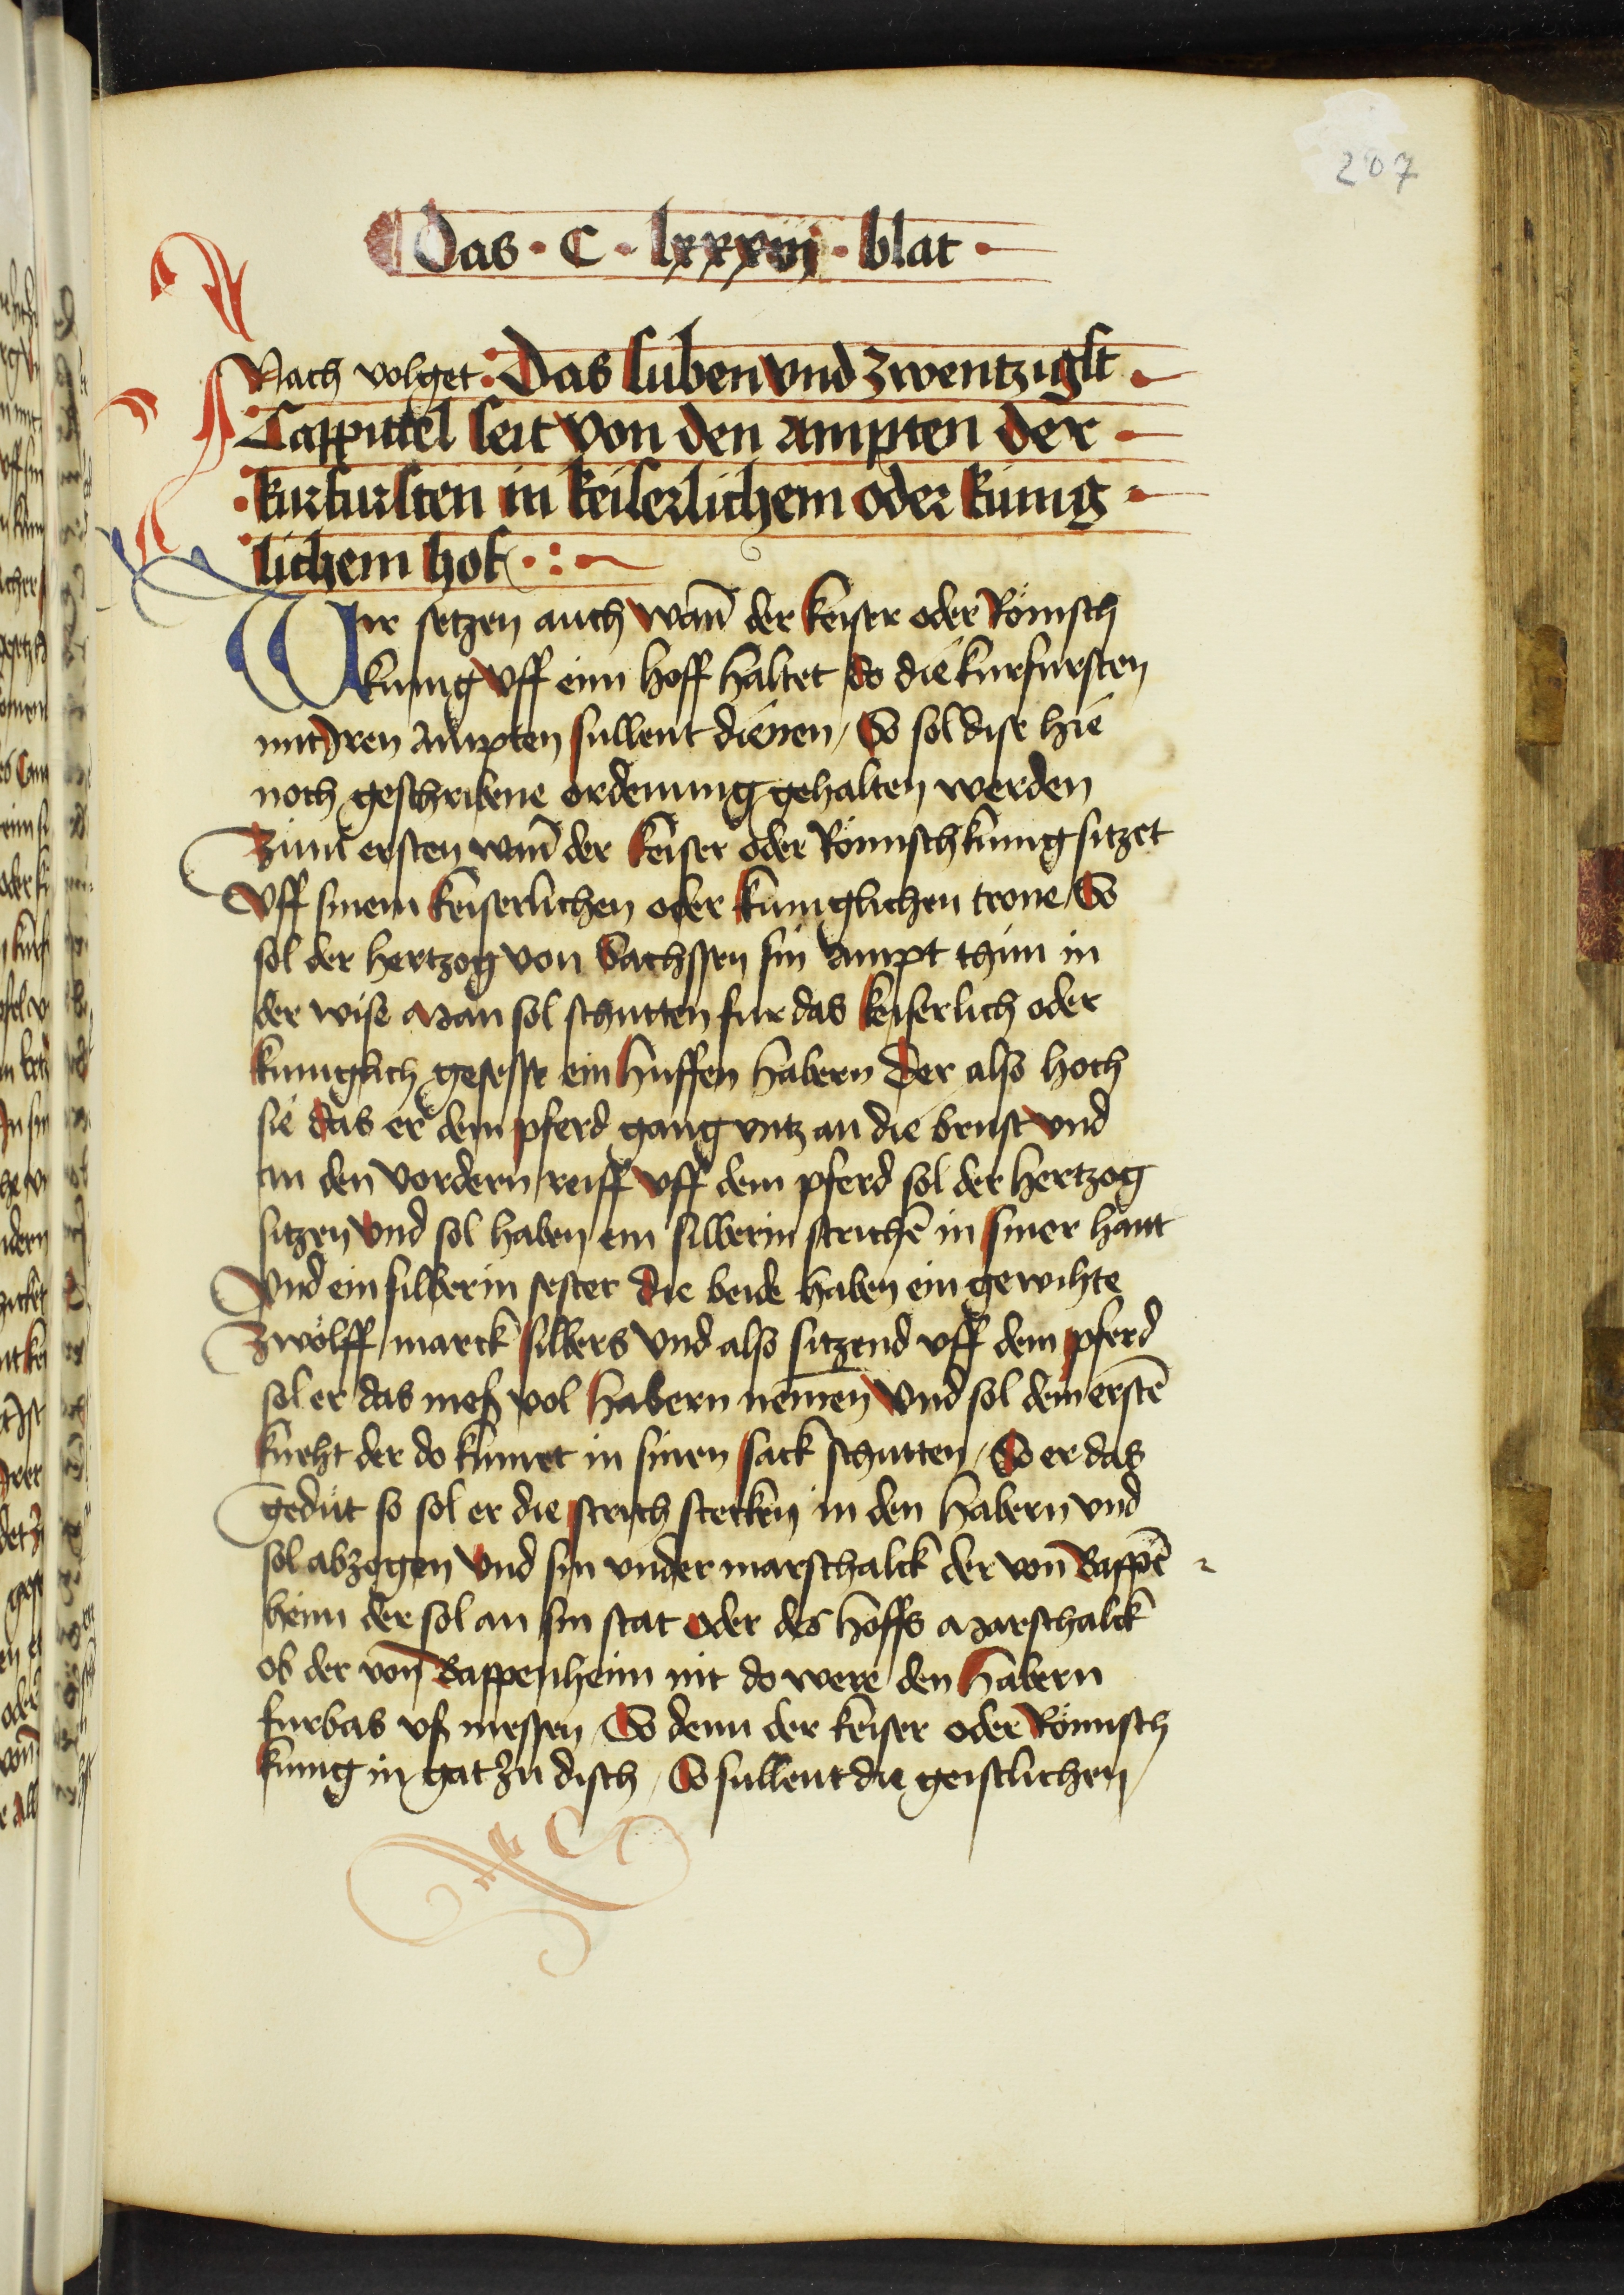 207
Das · C · lxxxvij · blat ·
Nach volget · Das suben vnd zwentzigst
Cappittel seit von den ampten der
kurfursten in keiserlichem oder kunig
lichem hof · : ~
Wir setzen auch wañ der keiser oder Römisch
kunig vff einn hoff haltet do die kurfursten
mit Jren Ampten sullent dienen / So sol dise hie
noch geschribene ordenung gehalten werden
Zum ersten wañ der keiser oder Römisch kunig sitzet
Vff sinem keiserlichen oder kuniglichen trone / So
sol der hertzog von Sachssen sin Ampt thun in
der wise Man sol schutten fur das keiserlich oder
kuniglich gesesse ein huffen habern Der also hoch
sie das er dem pferd gang vntz an die brust vnd
an den vordern reiff vff dem pferd sol der hertzog
sitzen vnd sol haben ein silberin strichē in siner hant
Vnd ein silberin sester die beide haben ein gewihte
Zwölff marck silbers vnd also sitzend vff dem pferd
sol er das meß vol habern nemen Vnd sol dem erstē
kneht der do kumet in sinen sack schutten / So er das
gedüt so sol er die strich stecken in den habern vnd
sol abzogen vnd sin vnder marschalck der von Bappē
heim der sol an sin stat oder des hoffs Marschalck
ob der von Bappenheim nit do were den habern
furbas vß messen / So denn der keiser oder Römisch
kunig in gat zu disch / So sullent die geistlichen